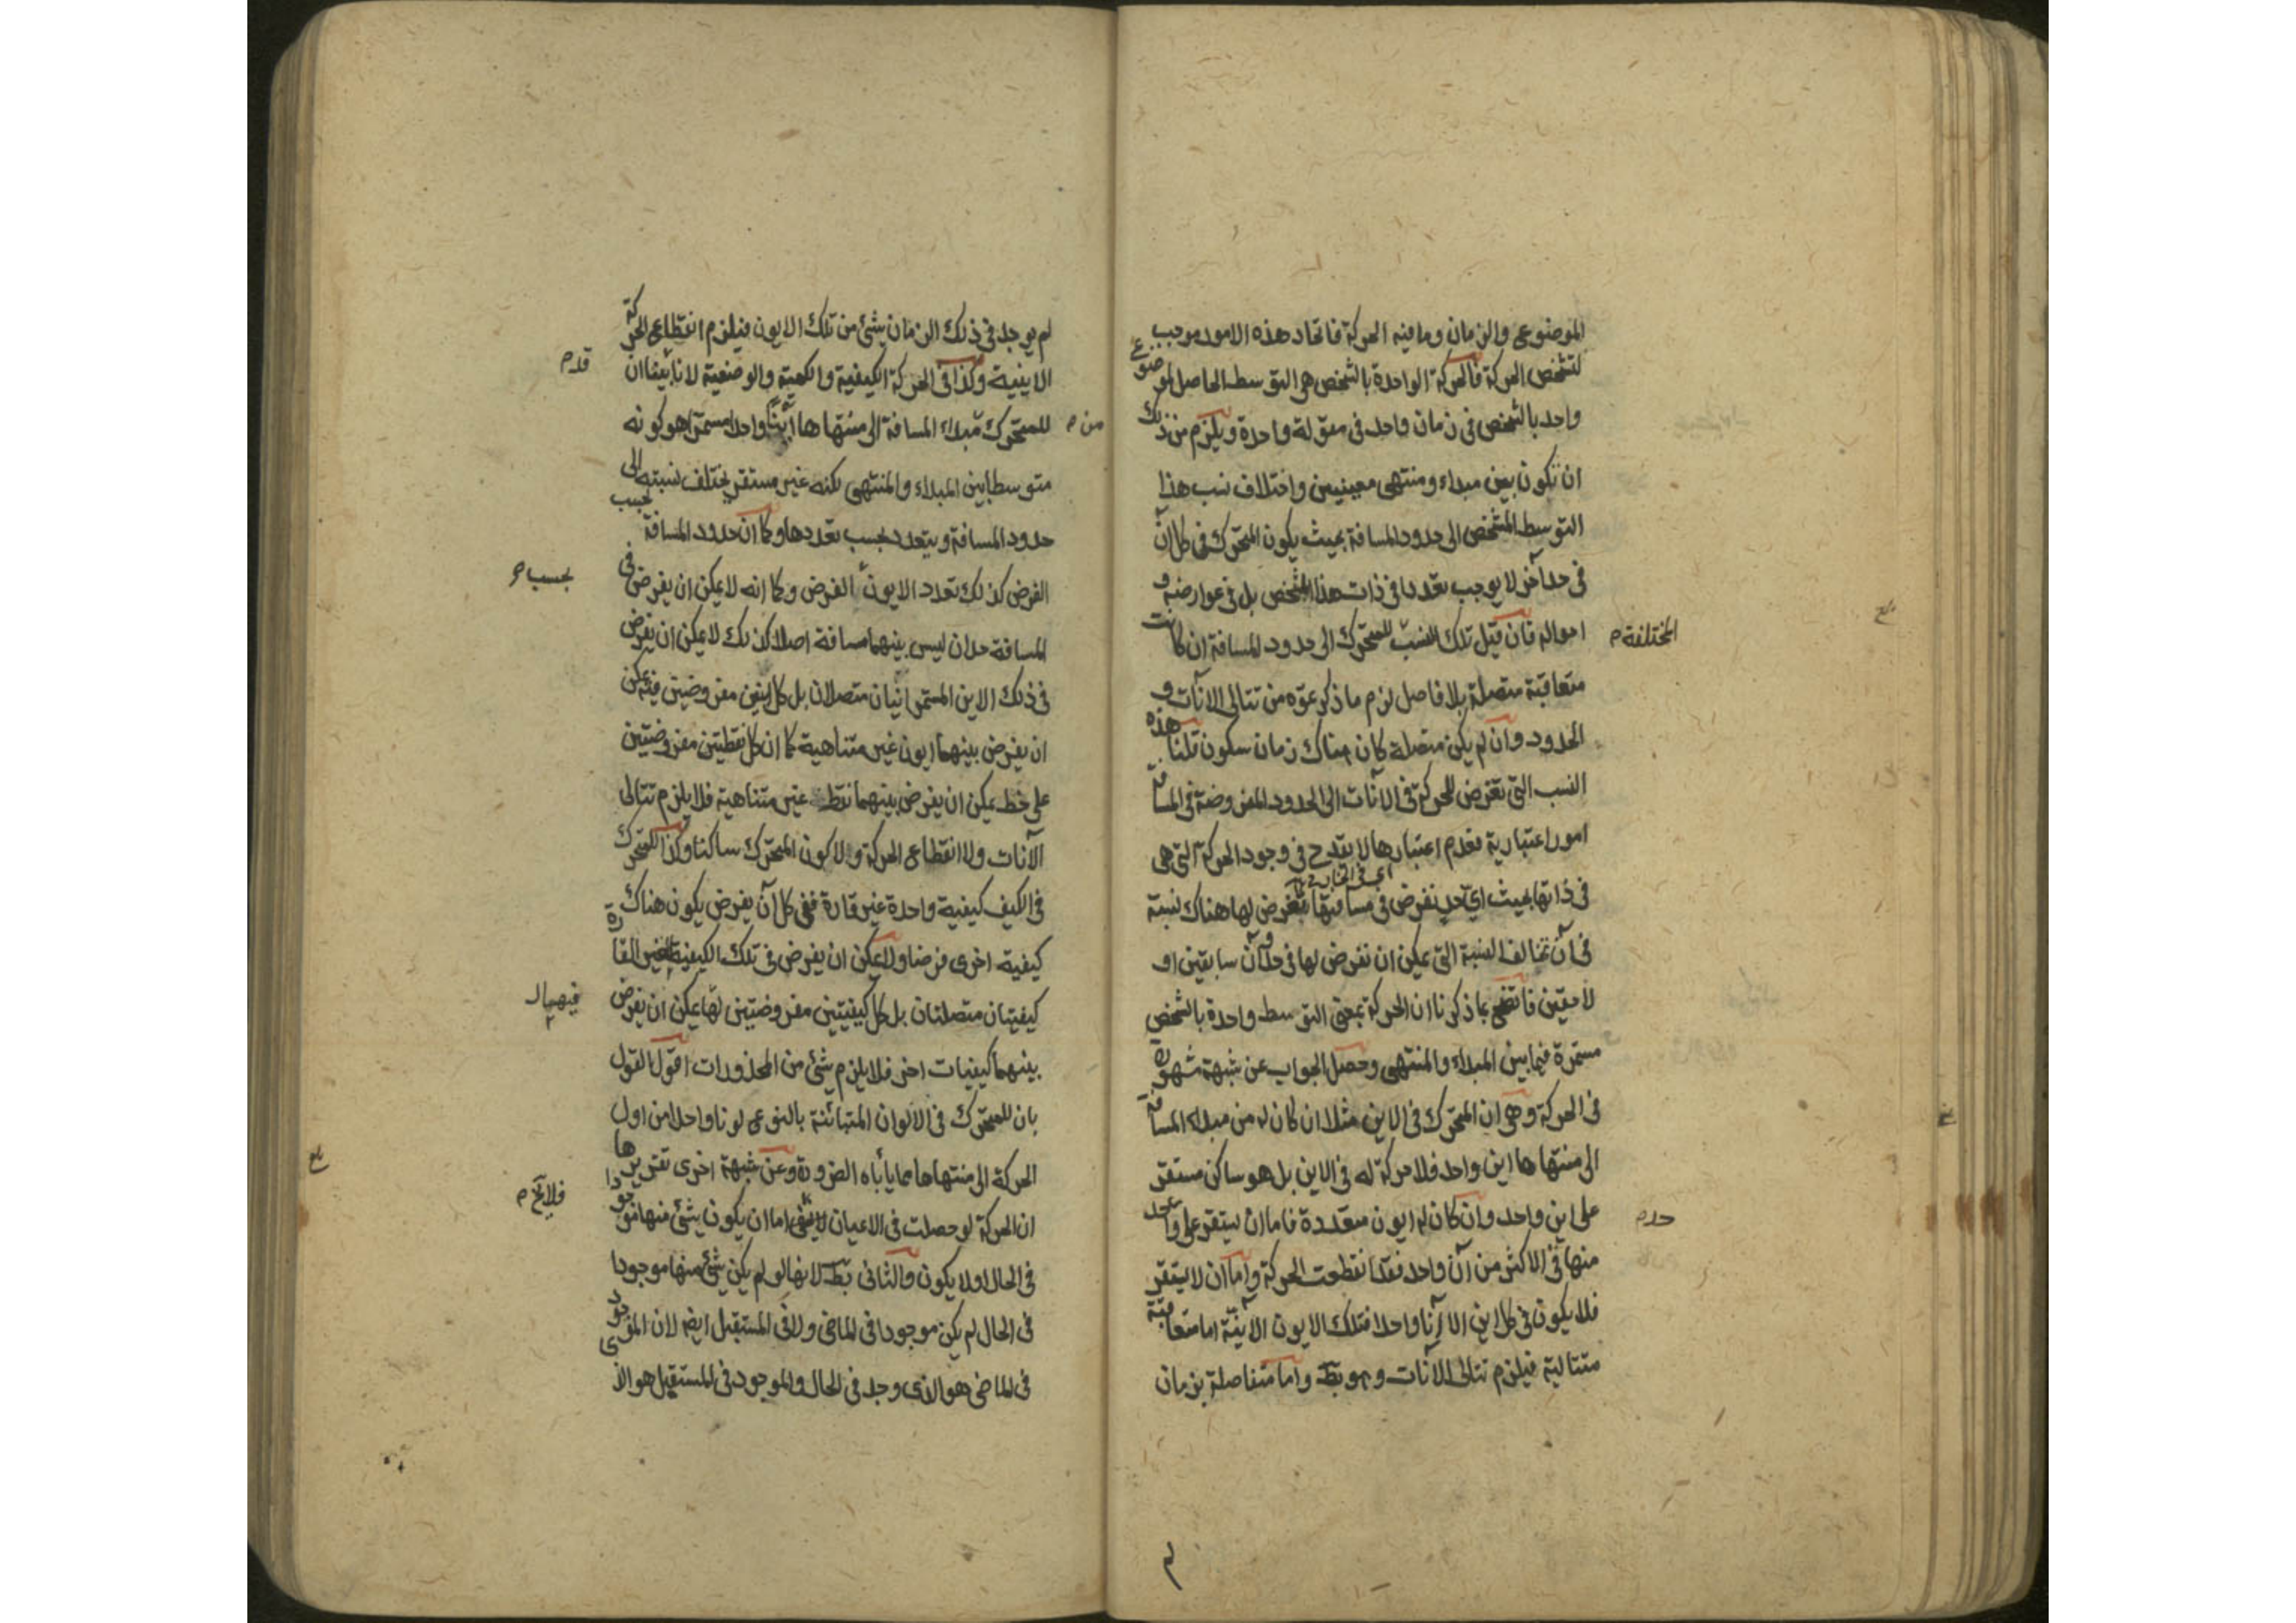 الموضوع والزمان وما فيه الحركة فاتحاد هذه الامور موجب
لتشخص الحركة فالحركة الواحدة بالشخص هي التوسط الحاصل لموضوع
واحد بالشخص في زمان واحد في مقولة واحدة ويلزم من ذلك
ان تكون بين مبداء ومنتهى معينين واختلاف نسب هذا
التوسط المتشخص الى حدود المسافة بحيث يكون المتحرك في كل آن
في حد آخر لا يوجب تعددا في ذات هذا الشخص بل في عوارضه و
احواله فان قيل تلك النسب للمتحرك الى حدود المسافة ان كانت
المختلفة م
متعاقبة متصلة بلا فاصل لزم ما ذكرتموه من تتالى الآنات و
الحدود وان لم يكن متصلة كان هناك زمان سكون قلنا هذه
النسب التي تعرض للحركة في الآنات الى الحدود المفروضة في المسافة
امور اعتبارية فعدم اعتبارها لا يقدح في وجود الحركة التي هي
في ذاتها بحيث اي حد نفرض في مسافتها تعرض لها هناك نسبة
في آن تخالف النسبة التي يمكن ان نفرض لها في حد وآن سابقين او
لاحقين فاتضح بما ذكرنا ان الحركة بمعنى التوسط واحدة بالشخص
مستمرة فيما بين المبداء والمنتهى وحصل الجواب عن شبهة مشهورة
في الحركة وهي ان المتحرك في الاين مثلا ان كان له من مبداء المسافة
الى منتهاها اين واحد فلا حركة له في الاين بل هو ساكن مستقر
على اين واحد وان كان له ايون متعددة فاما ان يستقر على واحد
حد م
منها في الاكثر من آن واحد فقد انقطعت الحركة واما ان لا يستقر
فلا يكون في كل اين الا آنا واحدا فتلك الايون الآنية اما متعاقبة
متتالية فيلزم تتالى الآنات وهو بط واما متفاصلة بزمان
لم يوجد في ذلك الزمان شئ من تلك الايون فيلزم انقطاع الحركة
الاينية وكذا في الحركة الكيفية والكمية والوضعية لانا بينا ان
قدم
للمتحرك مبداء المسافة الى منتهاها أينا واحدا مستمرا هو كونه
من م
متوسطا بين المبداء والمنتهى لكنه غير مستقر يختلف نسبته الى
حدود المسافة ويتعدد بحسب تعددها وكما ان حدود المسافة بحسب
الفرض كذلك تعدد الايون الفرض وكما انه لا يمكن ان يفرض في
بحسب
المسافة حدان ليس بينهما مسافة اصلا كذلك لا يمكن ان يفرض
في ذلك الاين المستمر اينان متصلان بل كل اينين مفروضين فيه يمكن
ان يفرض بينهما ايون غير متناهية كما ان كل نقطتين مفروضتين
على خط يمكن ان يفرض بينهما نقط غير متناهية فلا يلزم تتالى
الآنات ولا انقطاع الحركة ولا كون المتحرك ساكنا وكذا للمتحرك
في الكيف كيفية واحدة غير قارة ففي كل آن يفرض يكون هناك
كيفية اخرى فرضا ولا يمكن ان يفرض في تلك الكيفية الغير القارة
كيفيتان متصلتان بل كل كيفيتين مفروضتين لها يمكن ان يفرض
بينهما كيفيات اخر فلا يلزم شئ من المحذورات اقول القول
بان للمتحرك في الالوان المتبائنة بالنوع لونا واحدا من اول
الحركة الى منتهاها مما يأباه الضرورة وعن شبهة اخرى تقريرها
ان الحركة لو حصلت في الاعيان اما ان يكون شئ منها موجودا
في الحال اولا يكون والثاني بط لانها لو لم يكن شئ منها موجودا
في الحال لم يكن موجودا في الماضي ولا في المستقبل ايضا لان الموجود
في الماضي هو الذي وجد في الحال والموجود في المستقبل هو الذي